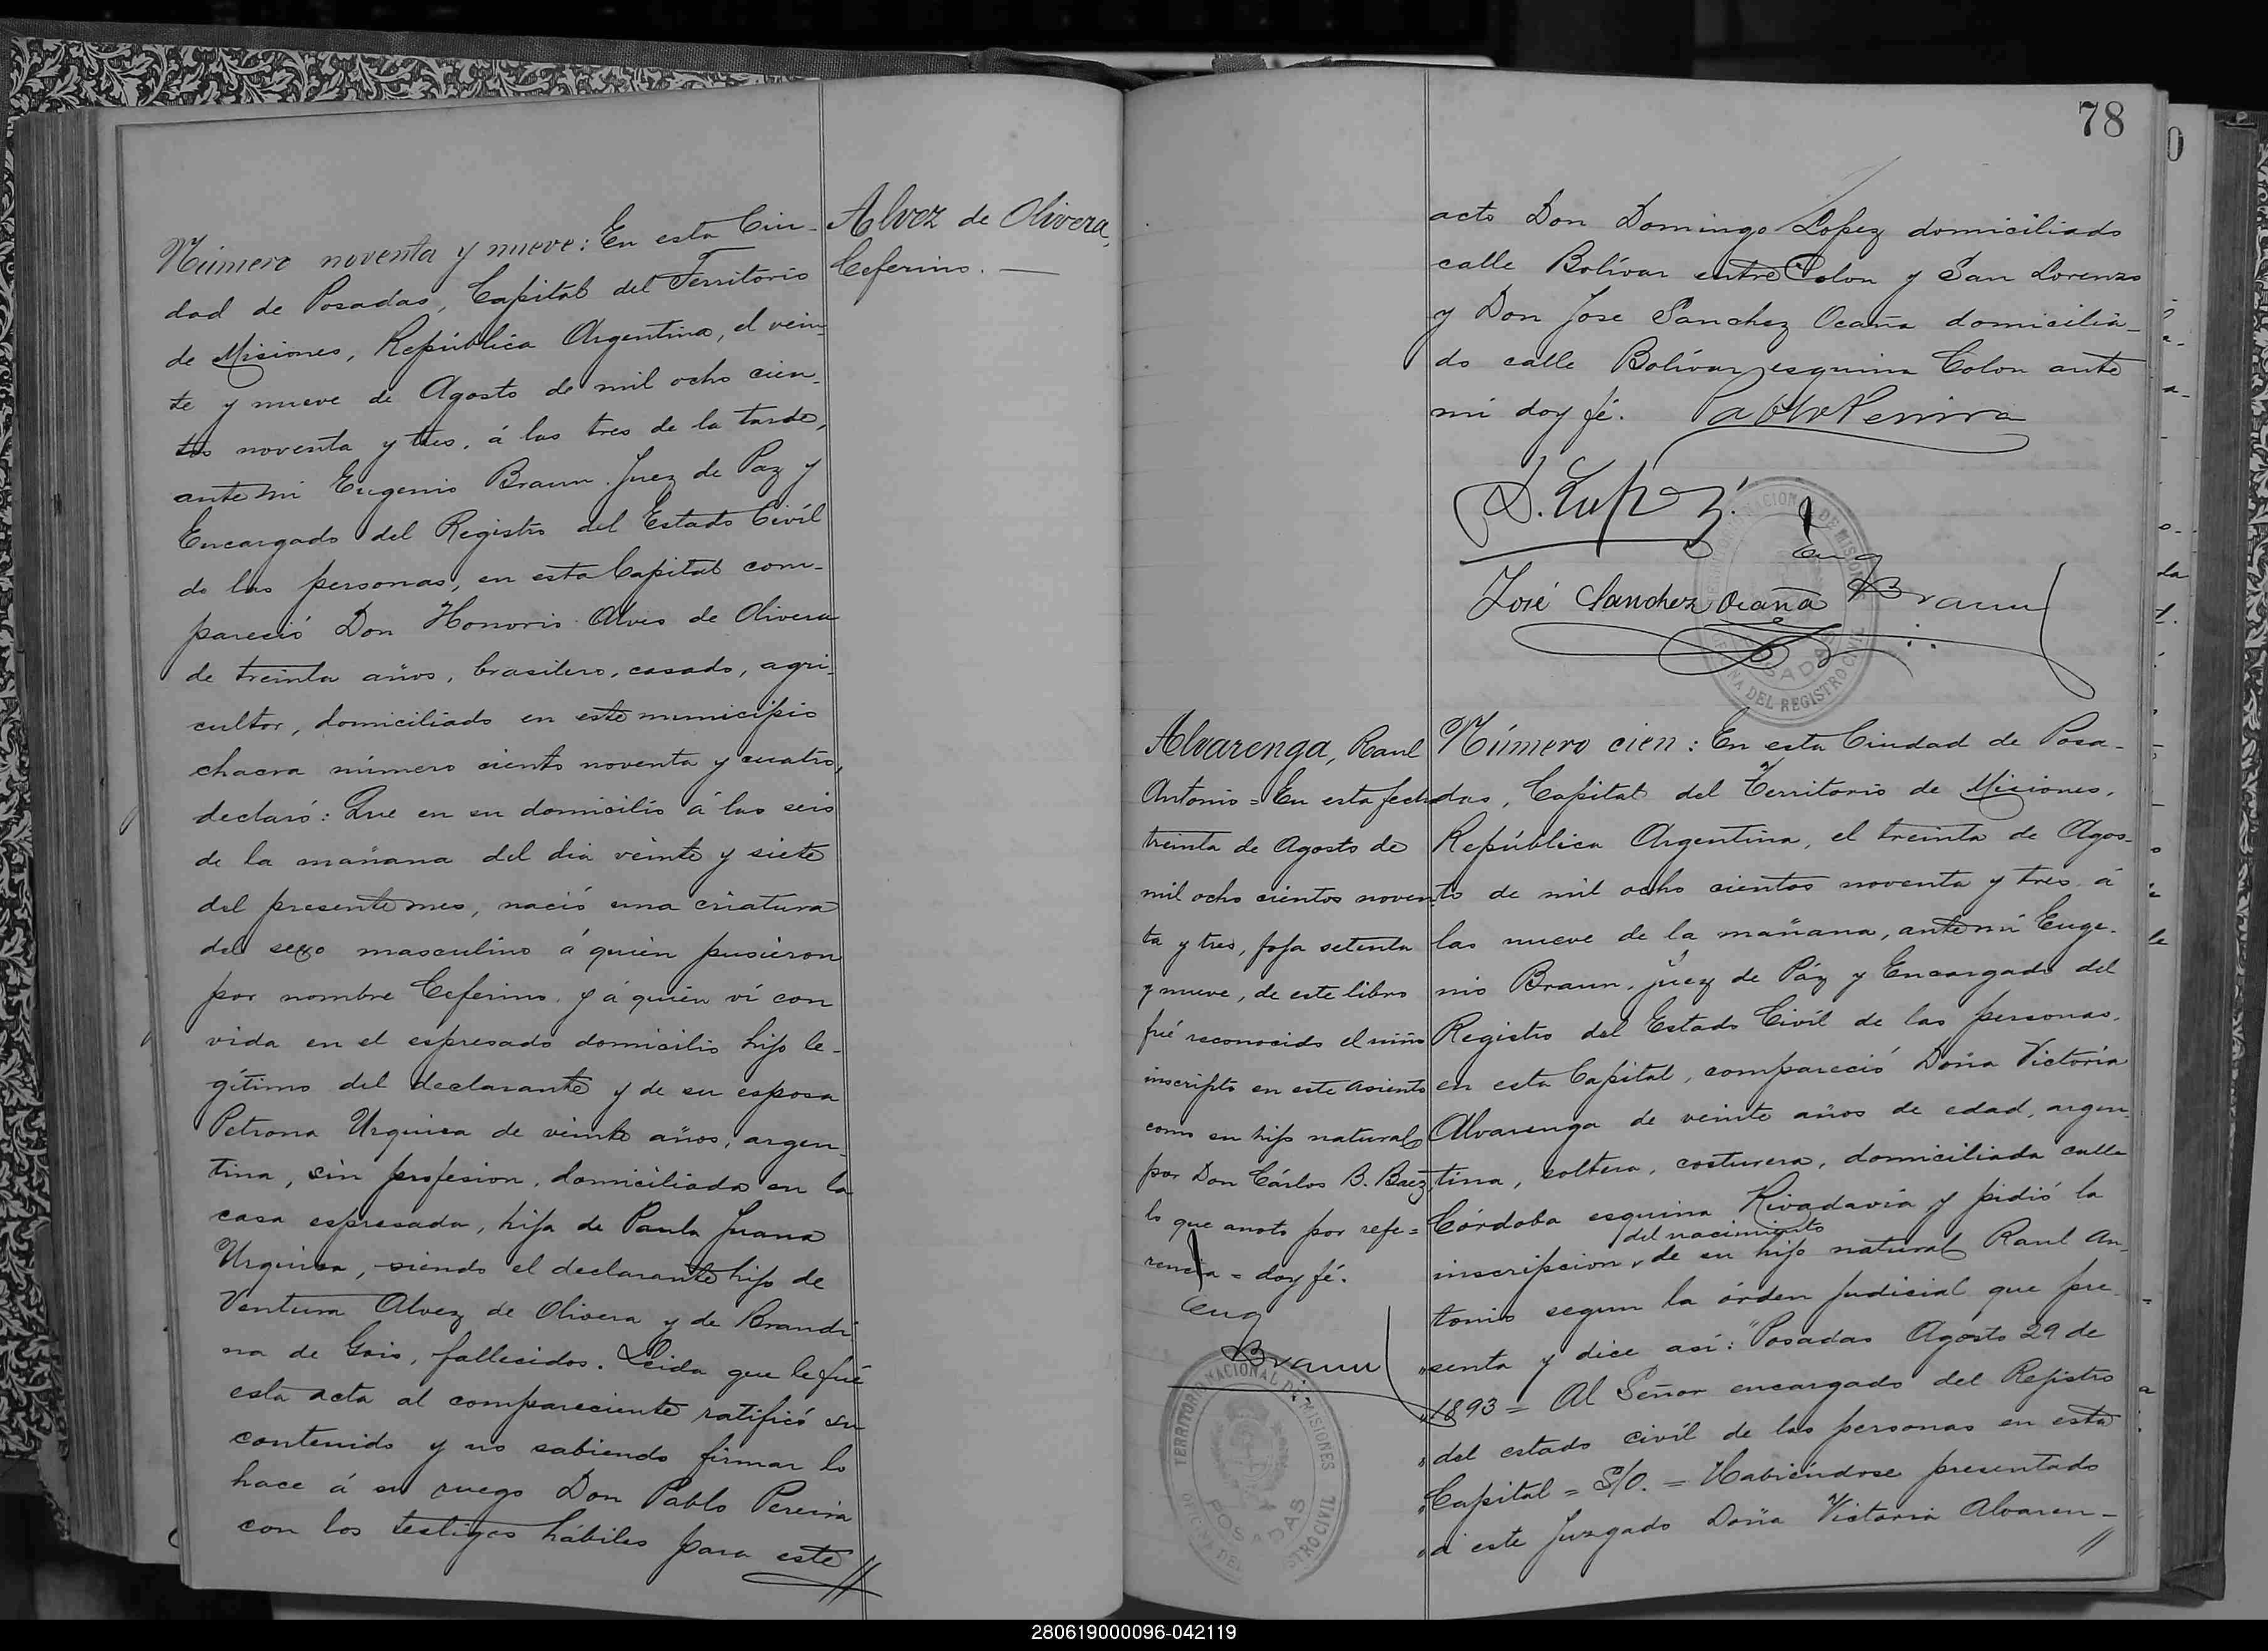 Número noventa y nueve: En esta Ciu-
dad de Posadas, Capital del Territorio
de Misiones, República Argentina, el vein
te y nueve de Agosto de mil ocho cien-
tos noventa y tres, á las tres de la tarde,
ante mi Eugenio Braun. Juez de Paz y
Encargado del Registro del Estado Civíl
de las personas, en esta Capital com-
pareció Don Honorio Alves de Olivera
de treinta años, brasilero, casado, agri-
cultor, domiciliado en este municipio
chacra número ciento noventa y cuatro,
declaró: Que en su domicilio á las seis
de la mañana del dia veinte y siete
del presente mes, nació una criatura
del sexo masculino á quién pusieron
por nombre Ceferino y á quién ví con
vida en el espresado domicilio hijo le-
gítimo del declarante y de su esposa
Petrona Urquiza de veinte años, argen-
tina, sin profesion, domiciliada en la
casa espresada, hija de Paula Juana
Urquiza, siendo el declarante hijo de
Ventura Alvez de Olivera y de Brandi
na de Gois, fallecidos. Leida que le fué
esta acta al compareciente ratificó su
contenido y no sabiendo firmar lo
hace á su ruego Don Pablo Pereira
con los testigos hábiles para este //
Alvez de Olivera,
Ceferino. —
78
acto Don Domingo Lopez domiciliado
calle Bolívar entre Colon y San Lorenzo
y Don Jose Sanchez Ocaña domicilia-
do calle Bolívar esquina Colon ante
mi doy fé. Pablo Pereira
D. Lopez
Eug
José Sanchez Ocaña Braun
Alvarenga, Raul
Antonio = En esta fecha
treinta de Agosto de
mil ocho cientos noven-
ta y tres, foja setenta
y nueve, de este libro
fué reconocido el niño
inscripto en este asiento
como su hijo natural
por Don Cárlos B. Baez,
lo que anoto por refe=
rencia = doy fé.
Eug
Braun
TERRITORIO NACIONAL DE MISIONES
POSADAS
Número cien: En esta Ciudad de Posa-
das, Capital del Territorio de Misiones,
República Argentina, el treinta de Agos-
to de mil ocho cientos noventa y tres á
las nueve de la mañana, ante mí Euge-
nio Braun, juez de Páz y Encargado del
Registro del Estado Civíl de las personas,
en esta Capital, compareció Doña Victoria
Alvarenga de veinte años de edad, argen-
tina, soltera, costurera, domiciliada calle
Córdoba esquina Rivadavia y pidió la
del nacimiento
inscripcion de su hijo natural Raul An-
tonio segun la órden judicial que pre-
senta y dice así: "Posadas Agosto 29 de
"1893 = Al Señor encargado del Rejistro
"del estado civíl de las personas en esta
"Capital = S/O. = Habiéndose presentado
"á este Juzgado Doña Victoria Alvaren- //
280619000096-042119